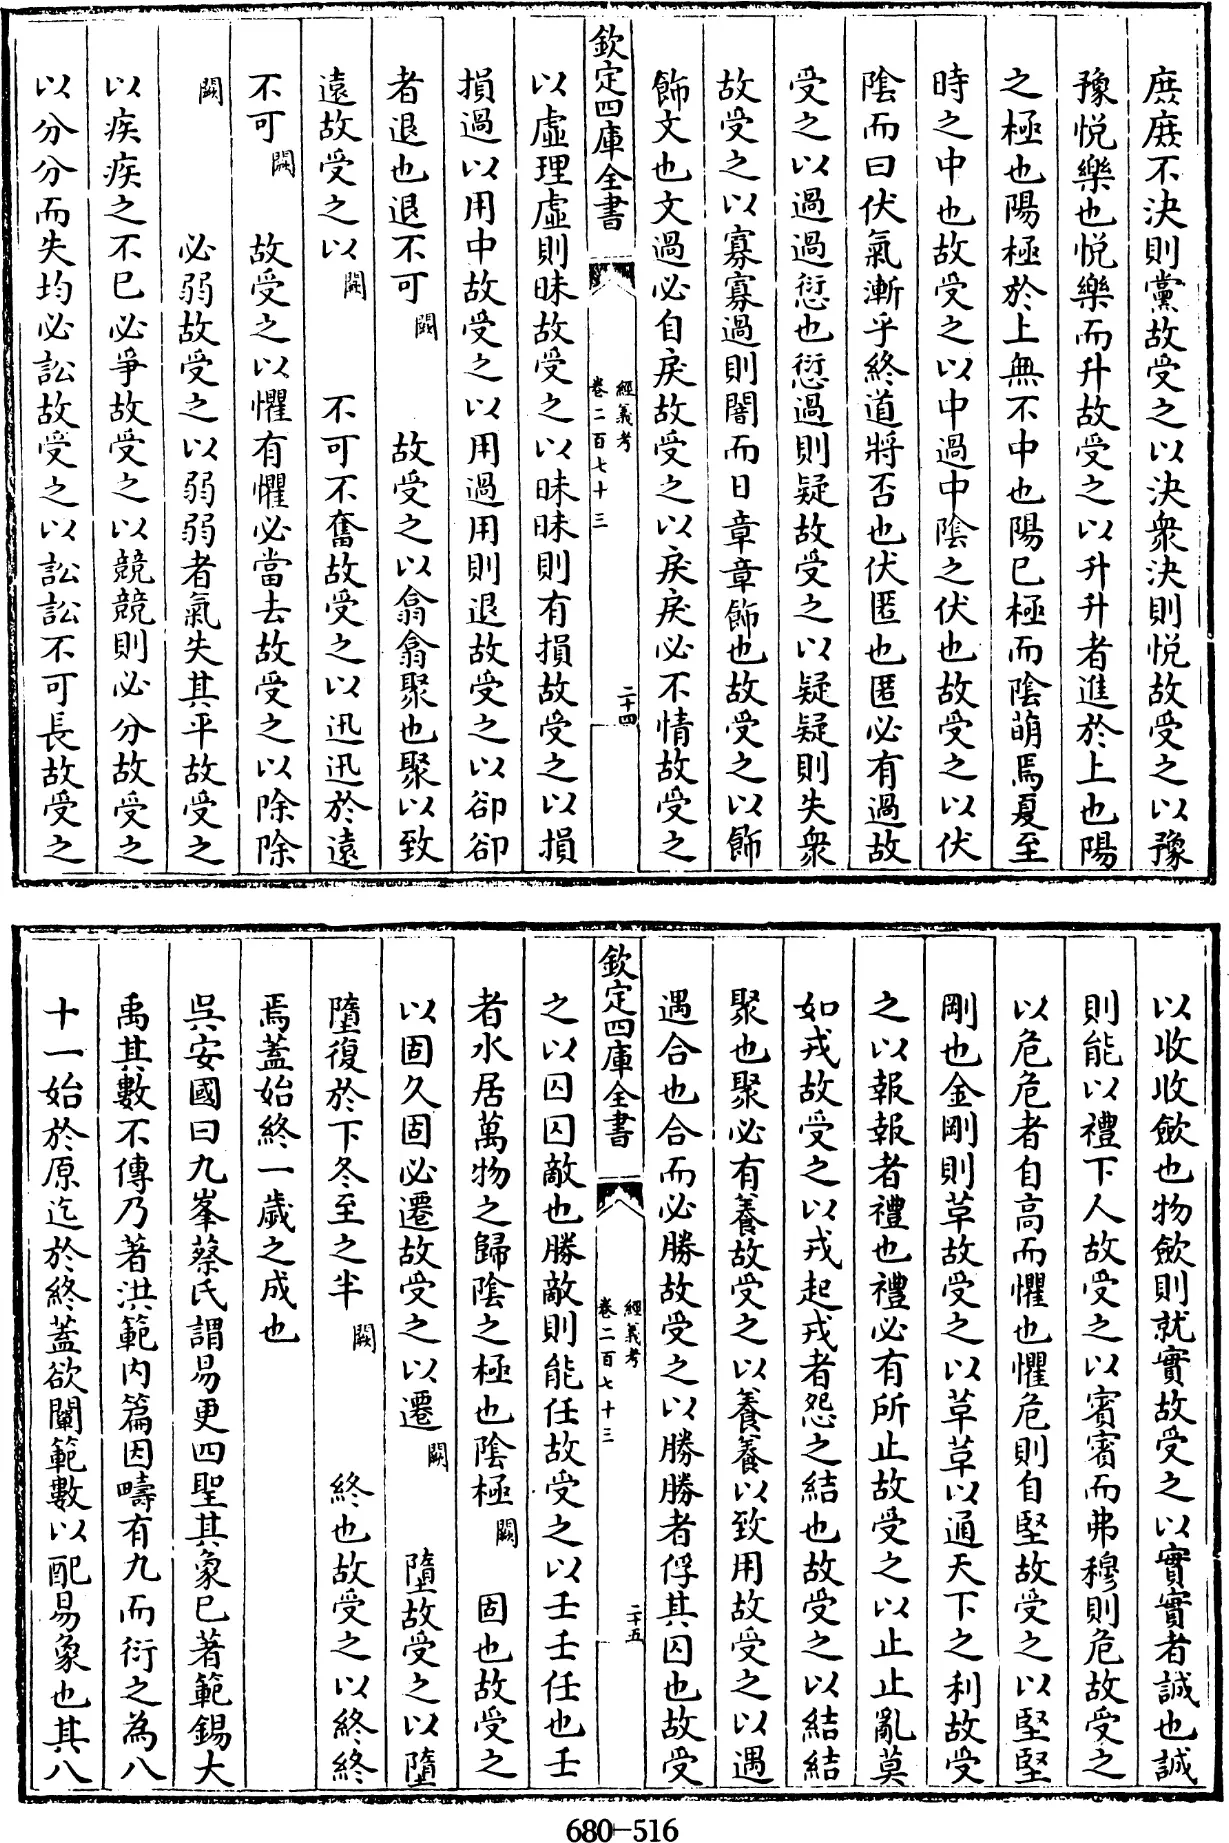 庶庶不決則黨故受之以決衆決則悦故受之以豫
豫悦樂也悦樂而升故受之以升升者進於上也陽
之極也陽極於上無不中也陽已極而陰萌焉夏至
時之中也故受之以中過中陰之伏也故受之以伏
陰而曰伏氣漸乎終道將否也伏匿也匿必有過故
受之以過過愆也愆過則疑故受之以疑疑則失衆
故受之以寡寡過則闇而日章章飾也故受之以飾
飾文也文過必自戾故受之以戾戾必不情故受之
欽定四庫全書
經義考
卷二百七十三
二十四
以虛理虛則昧故受之以昧昧則有損故受之以損
損過以用中故受之以用過用則退故受之以卻卻
者退也退不可 闕 故受之以翕翕聚也聚以致
遠故受之以 闕 不可不奮故受之以迅迅於遠
不可 闕 故受之以懼有懼必當去故受之以除除
闕 必弱故受之以弱弱者氣失其平故受之
以疾疾之不已必爭故受之以競競則必分故受之
以分分而失均必訟故受之以訟訟不可長故受之
以收收斂也物斂則就實故受之以實實者誠也誠
則能以禮下人故受之以賓賓而弗穆則危故受之
以危危者自高而懼也懼危則自堅故受之以堅堅
剛也金剛則草故受之以草草以通天下之利故受
之以報報者禮也禮必有所止故受之以止止亂莫
如戎故受之以戎起戎者怨之結也故受之以結結
聚也聚必有養故受之以養養以致用故受之以遇
遇合也合而必勝故受之以勝勝者俘其囚也故受
欽定四庫全書
經義考
卷二百七十三
二十五
之以囚囚敵也勝敵則能任故受之以壬壬任也壬
者水居萬物之歸陰之極也陰極 闕 固也故受之
以固久固必遷故受之以遷 闕 墮故受之以墮
墮復於下冬至之半 闕 終也故受之以終終
焉蓋始終一歲之成也
吳安國曰九峯蔡氏謂易更四聖其象已著範錫大
禹其數不傳乃著洪範内篇因疇有九而衍之為八
十一始於原迄於終蓋欲闡範數以配易象也其八
680-516